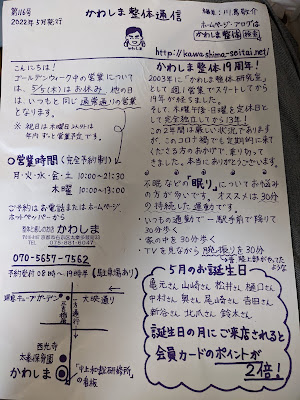 第116号
2022年5月発行
かわしま整体通信
編集：川島敬介
ホームページ・ブログは
かわしま整体 検索
http://kawashima-seitai.net/
こんにちは！
ゴールデンウィーク中の営業については、
5/5(木)はお休み、他の日
は、いつもと同じ通常通りの営業
となります。
※ 祝日は木曜日以外は
年内ずっと営業予定です。
◎営業時間（完全予約制）
月・火・水・金・土 10:00〜21:30
木曜 10:00〜13:00
ご予約はお電話またはホームページ、
ホットペッパーから
整体と癒しのお店 かわしま
075-881-6047
070-5657-7562
予約受付 08時〜19時半（駐車場あり）
大映通り
西光寺
太秦保育園
かわしま
の看板
かわしま整体19周年！
2003年に「かわしま整体研究室」
として週1営業でスタートしてから
19年が経ちました。
そして、木曜午後・日曜を定休日と
して完全独立してから13年！
この2年間は厳しい状況であります
が、このコロナ禍でも定期的に来て
くださる方のおかげで、乗り切って
きました。本当にありがとうございます。
不眠などの「眠り」についてお悩み
の方が多いです。オススメは30分
の持続した運動です。
・いつもの通勤で一駅手前で降りて
30分歩く
・家の中を30分歩く
・TVを見ながら腕振りを30分
5月のお誕生日
亀元さん 山崎さん 松井さん 樋口さん
中村さん 奥さん 尾崎さん 吉田さん
新谷さん 北爪さん 鈴木さん
誕生日の月にご来店されると
会員カードのポイントが
2倍！